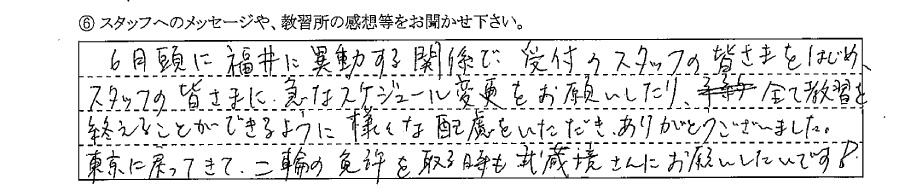 ⑥ スタッフへのメッセージや、教習所の感想等をお聞かせ下さい。
6月頭に福井に異動する関係で、受付のスタッフの皆さまをはじめ、
スタッフの皆さまに、急なスケジュール変更をお願いしたり、全て教習を
終えることができるように様々な配慮をいただき、ありがとうございました。
東京に戻ってきて、二輪の免許を取る時も武蔵境さんにお願いしたいです!